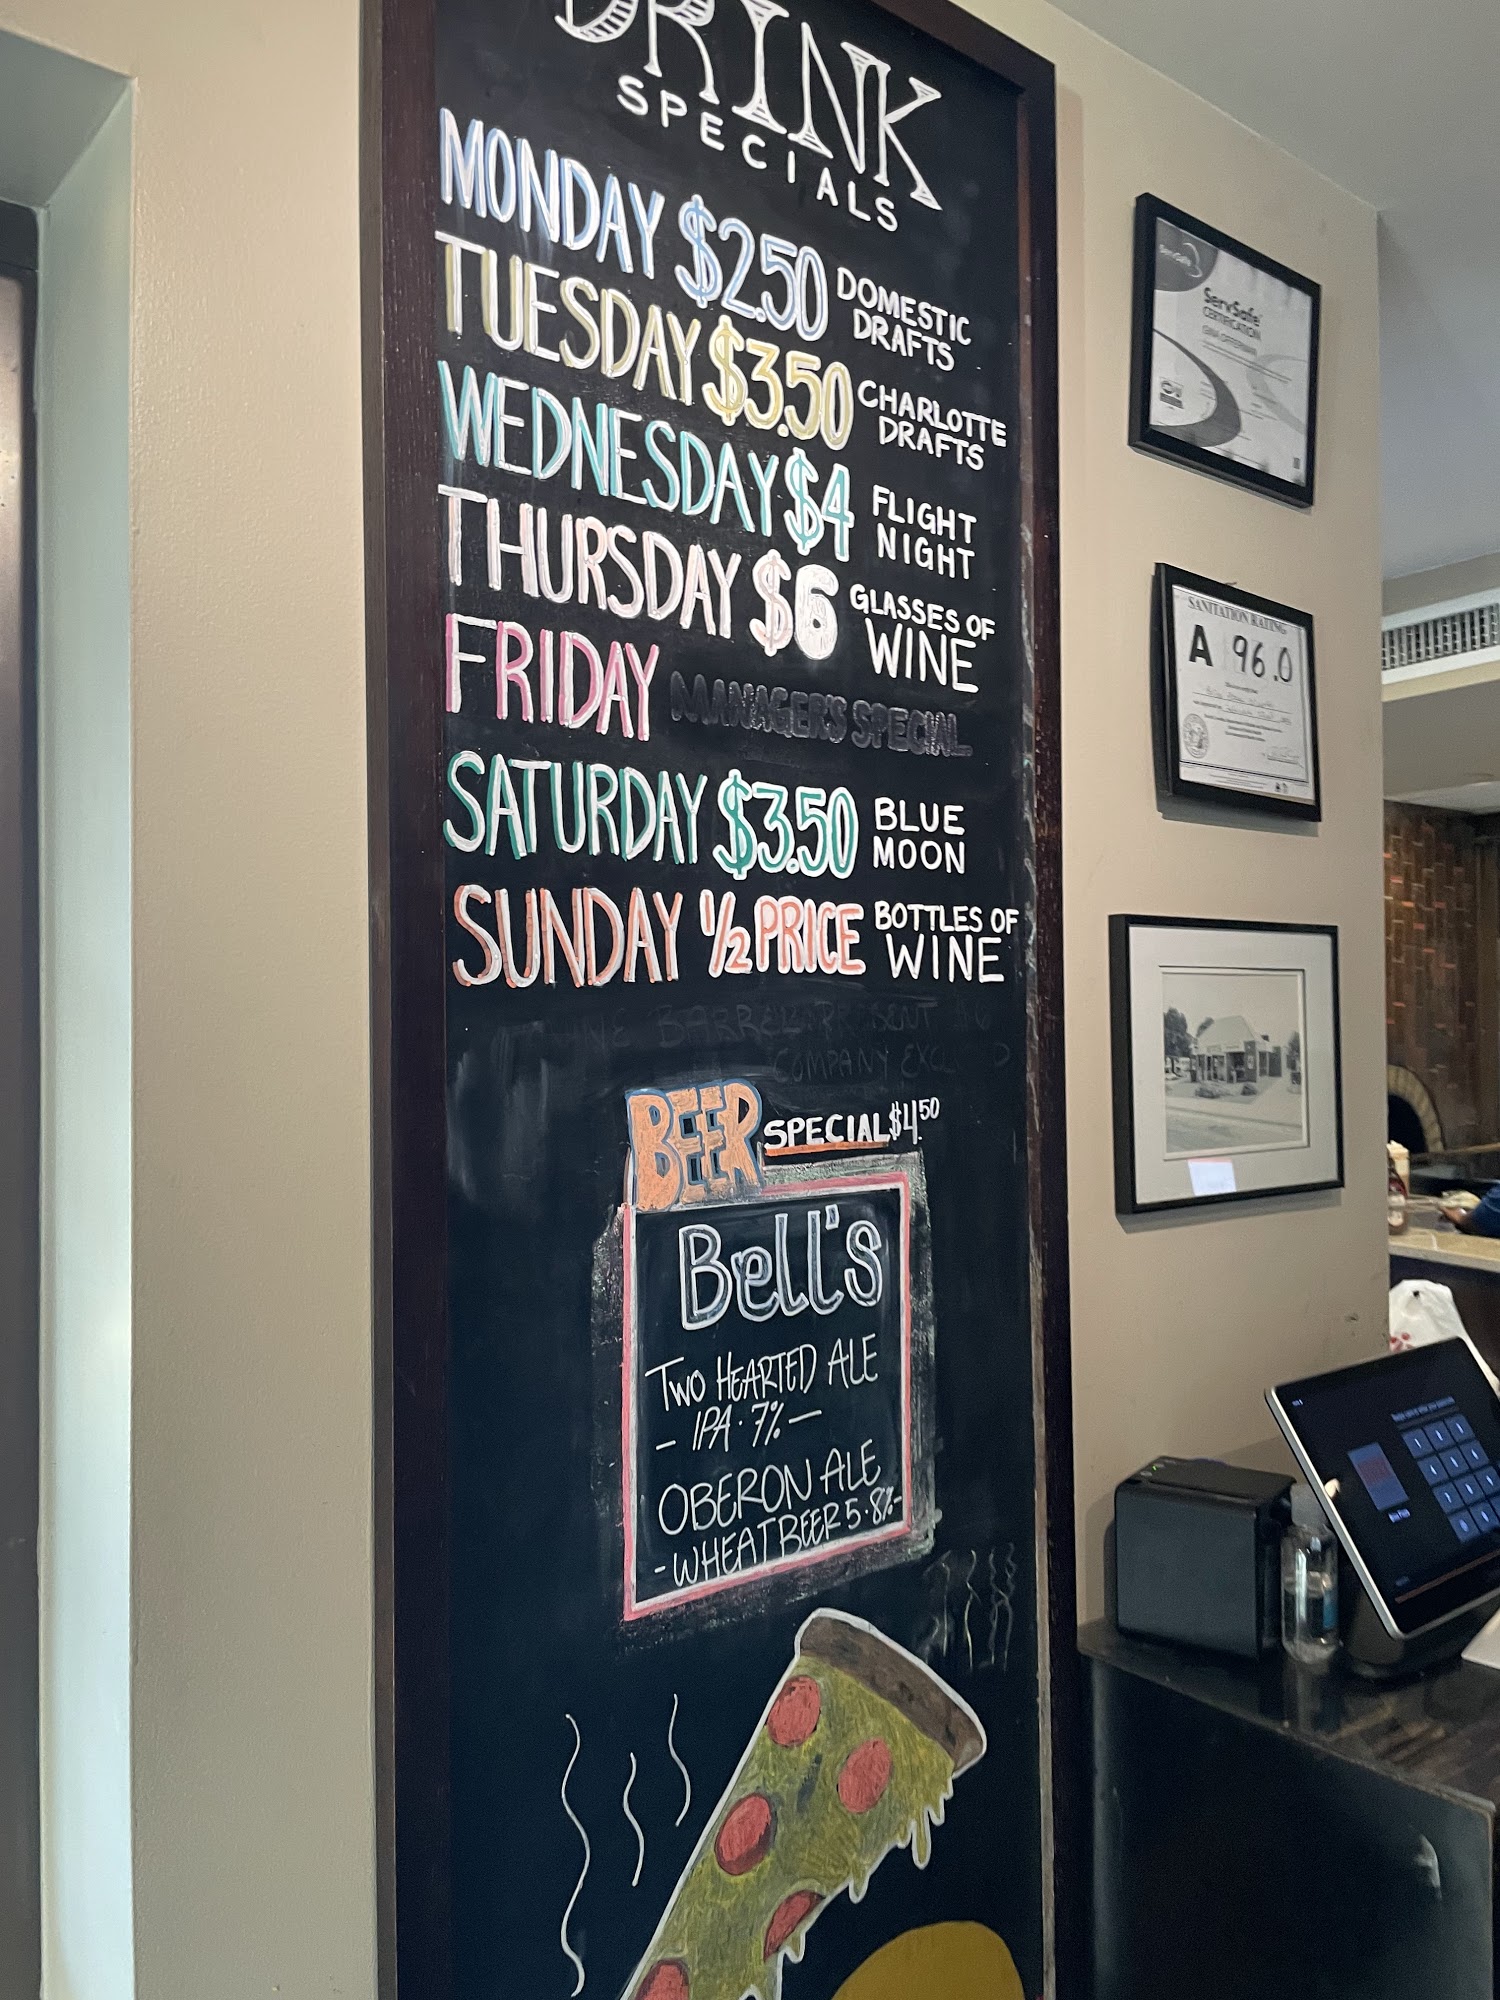 DRINK
SPECIALS
MONDAY $2.50 DOMESTIC DRAFTS
TUESDAY $3.50 CHARLOTTE DRAFTS
WEDNESDAY $4 FLIGHT NIGHT
THURSDAY $6 GLASSES OF WINE
FRIDAY MANAGER'S SPECIAL
SATURDAY $3.50 BLUE MOON
SUNDAY 1/2 PRICE BOTTLES OF WINE
BARREL PRESENT
COMPANY
BEER SPECIAL $4.50
Bell's
TWO HEARTED ALE
- IPA · 7% -
OBERON ALE
- WHEAT BEER 5.8% -
ServSafe
ServSafe
CERTIFICATION
SANITATION RATING
A 96.0